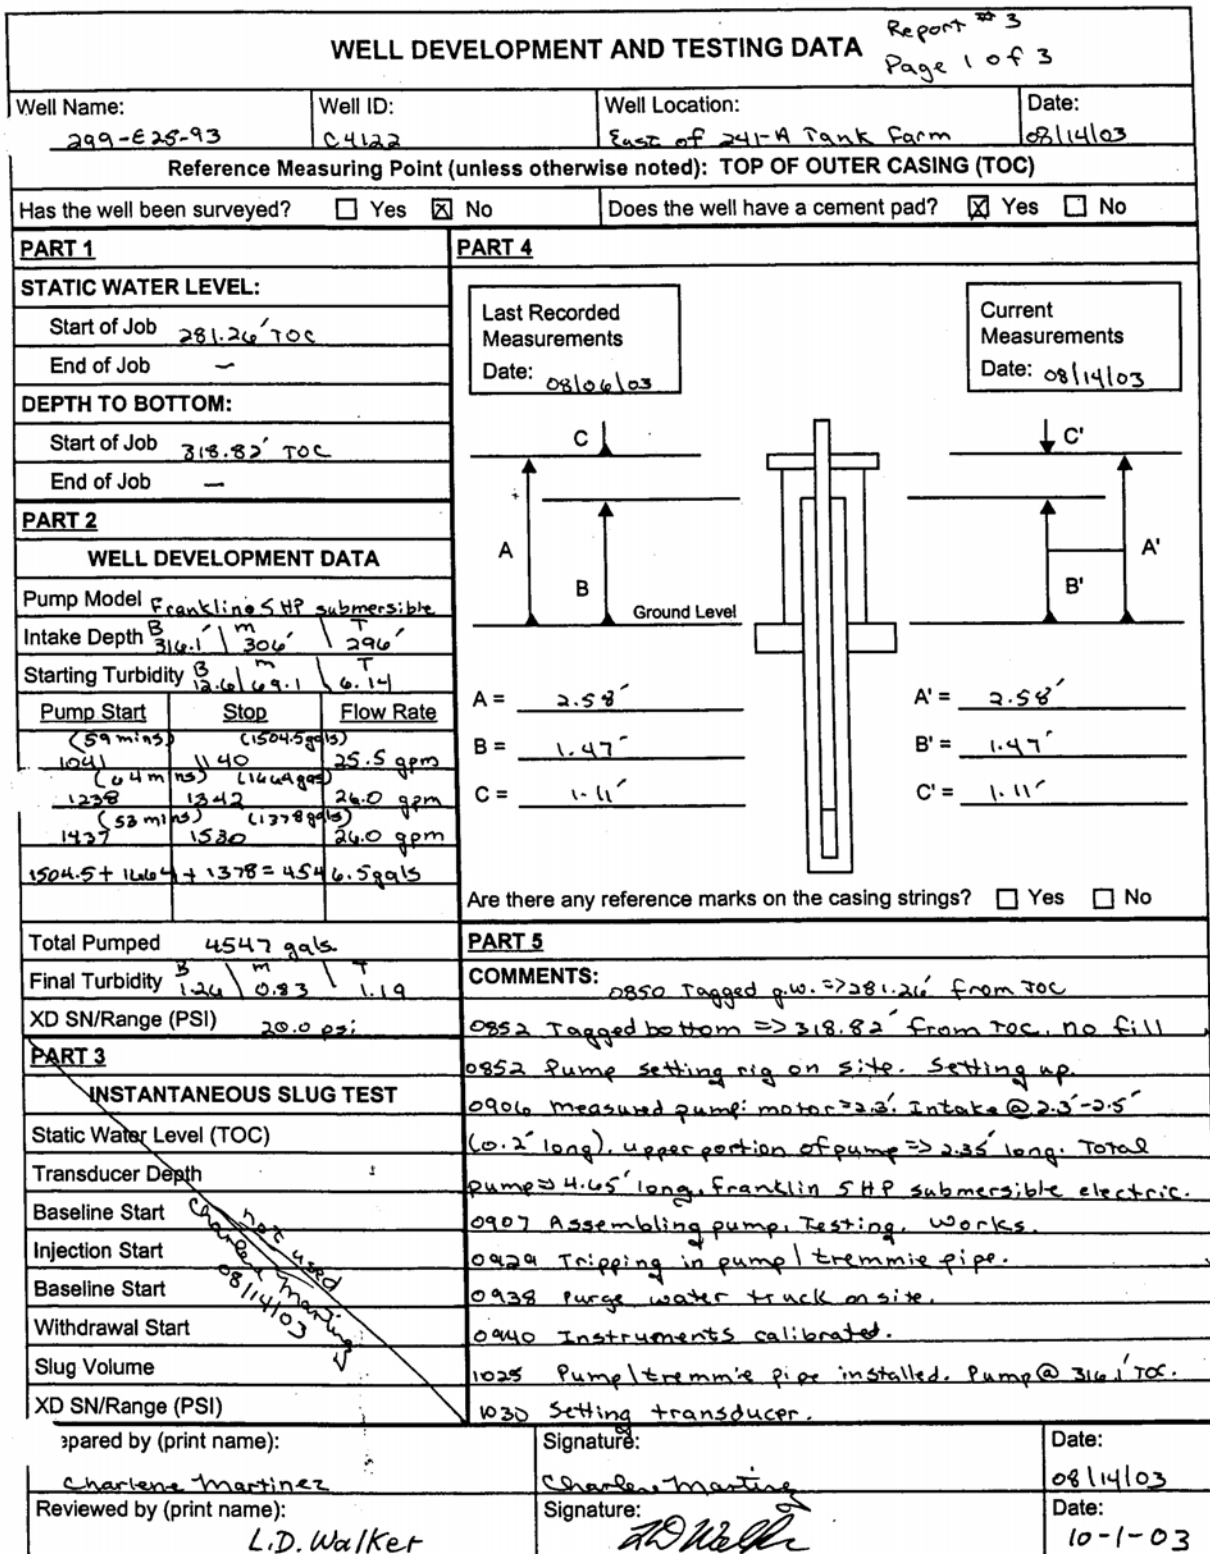 WELL DEVELOPMENT AND TESTING DATA
Report # 3
Page 1 of 3
Well Name:
299-E25-93
Well ID:
C4122
Well Location:
East of 241-A Tank Farm
Date:
08/14/03
Reference Measuring Point (unless otherwise noted): TOP OF OUTER CASING (TOC)
Has the well been surveyed? ☐ Yes ☒ No
Does the well have a cement pad? ☒ Yes ☐ No
PART 1
STATIC WATER LEVEL:
Start of Job 281.26' TOC
End of Job —
DEPTH TO BOTTOM:
Start of Job 318.82' TOC
End of Job —
PART 2
WELL DEVELOPMENT DATA
Pump Model Franklin 5 HP submersible
B m T
Intake Depth 316.1' \ 306' \ 296'
B m T
Starting Turbidity 12.6 \ 69.1 \ 6.14
Pump Start Stop Flow Rate
(59 mins) (1504.5 gals)
1041 1140 25.5 gpm
(64 mins) (1664 gas)
1238 1342 26.0 gpm
(53 mins) (1378 gals)
1437 1530 26.0 gpm
1504.5 + 1664 + 1378 = 4546.5 gals
Total Pumped 4547 gals
B m T
Final Turbidity 1.26 \ 0.83 \ 1.19
XD SN/Range (PSI) 20.0 psi
PART 3
INSTANTANEOUS SLUG TEST
Static Water Level (TOC)
Transducer Depth
Baseline Start
Injection Start
Baseline Start
Withdrawal Start
Slug Volume
XD SN/Range (PSI)
not used
Charlene Martinez
08/14/03
PART 4
Last Recorded
Measurements
Date: 08/06/03
Current
Measurements
Date: 08/14/03
C
C'
A
B
Ground Level
B'
A'
A = 2.58'
B = 1.47'
C = 1.11'
A' = 2.58'
B' = 1.47'
C' = 1.11'
Are there any reference marks on the casing strings? ☐ Yes ☐ No
PART 5
COMMENTS: 0850 Tagged g.w. => 281.26' from TOC
0852 Tagged bottom => 318.82' from TOC. no fill
0852 Pump setting rig on site. Setting up.
0906 Measured pump: motor = 2.3'. Intake @ 2.3'-2.5'
(0.2' long), upper portion of pump => 2.35' long. Total
pump => 4.65' long. Franklin 5 HP submersible electric.
0907 Assembling pump. Testing. Works.
0929 Tripping in pump / tremmie pipe.
0938 Purge water truck on site.
0940 Instruments calibrated.
1025 Pump / tremmie pipe installed. Pump @ 316.1' TOC.
1030 Setting transducer.
epared by (print name):
Charlene Martinez
Signature:
Charlene Martinez
Date:
08/14/03
Reviewed by (print name):
L.D. Walker
Signature:
LD Walker
Date:
10-1-03